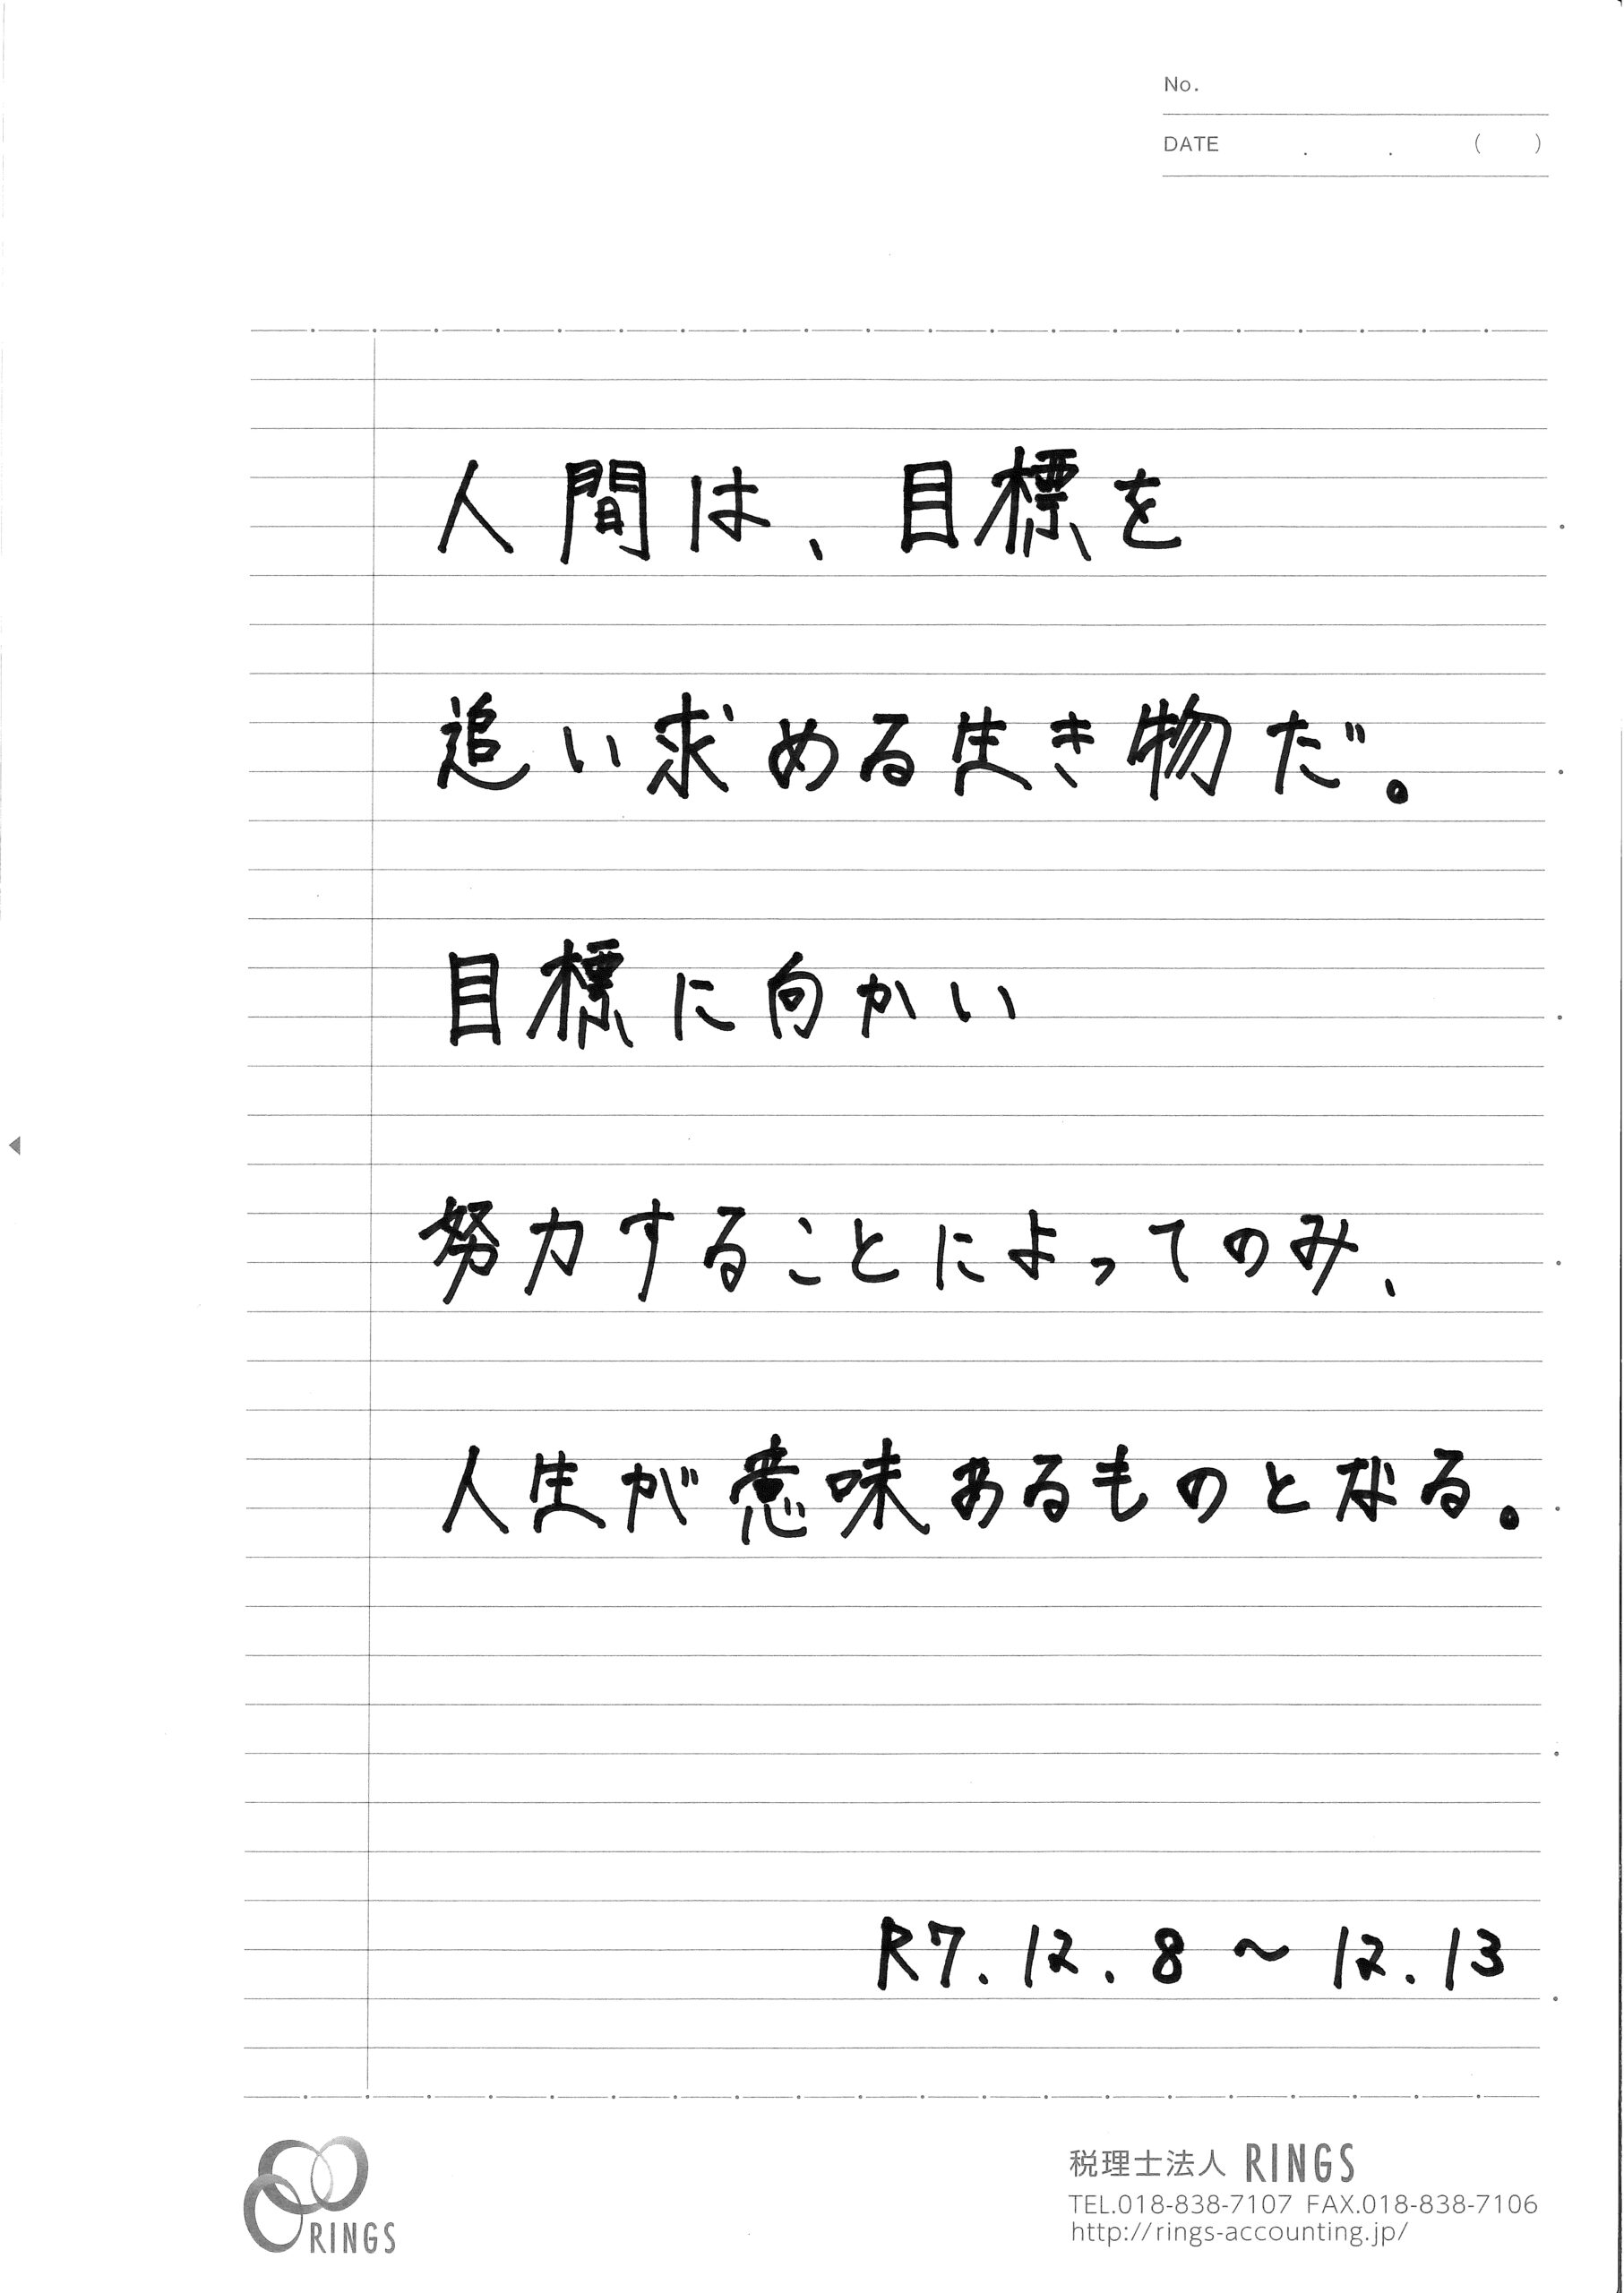 No.
DATE . . ( )
人間は、目標を
追い求める生き物だ。
目標に向かい
努力することによってのみ、
人生が意味あるものとなる。
R7.12.8～12.13
RINGS
税理士法人 RINGS
TEL.018-838-7107 FAX.018-838-7106
http://rings-accounting.jp/